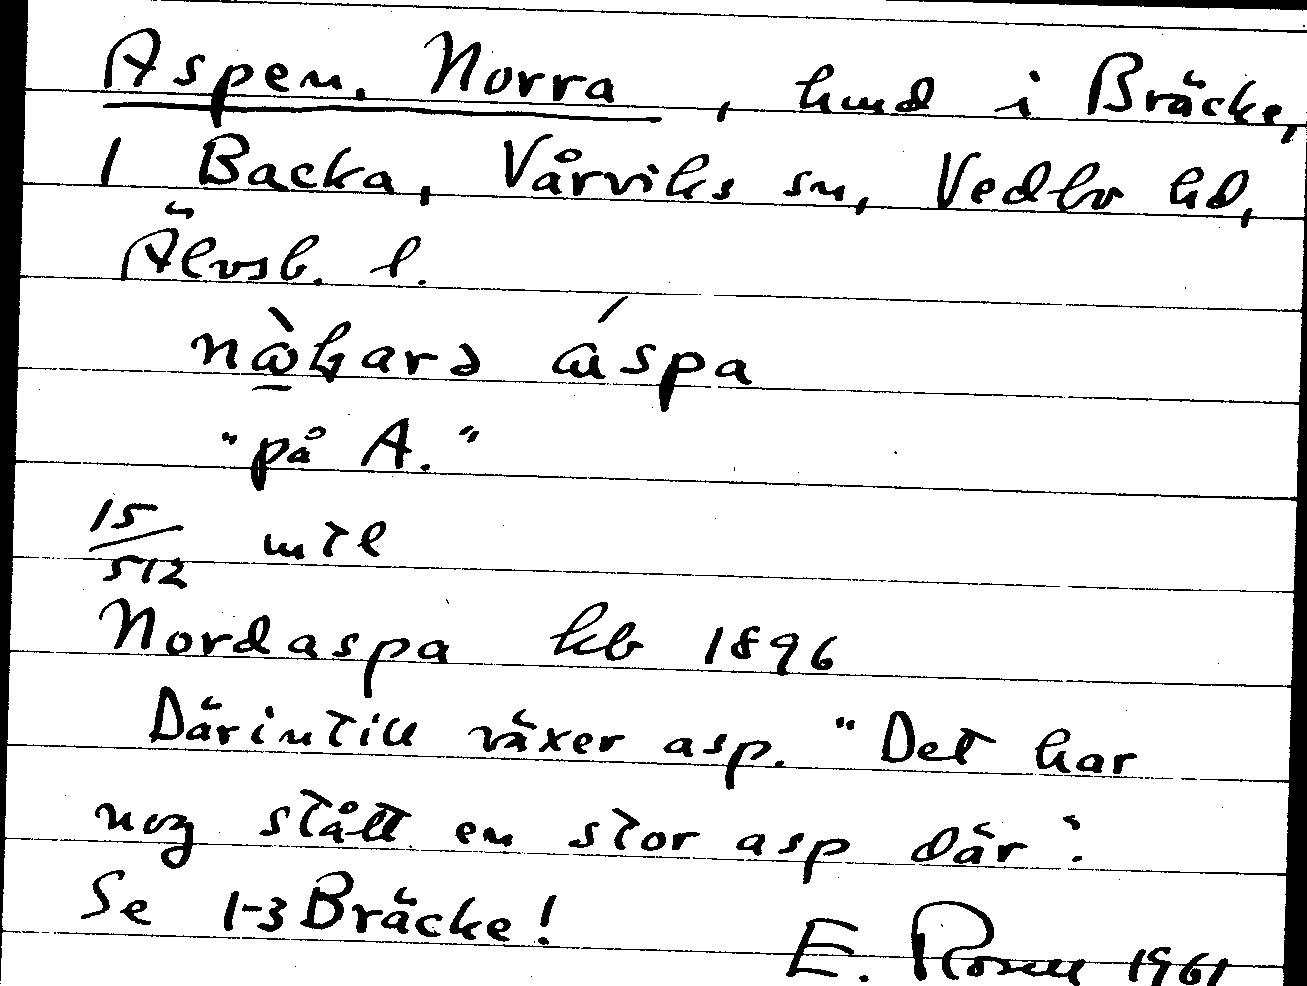 Aspen. Norra, hmd i Bräcke,
1 Backa, Vårviks sn, Vedbo hd,
Älvsb. l.
"på A."
15/512 mtl
Nordaspa kb 1896
Därintill växer asp. "Det har
nog stått en stor asp där".
Se 1-3 Bräcke!
E. Rosell 1961